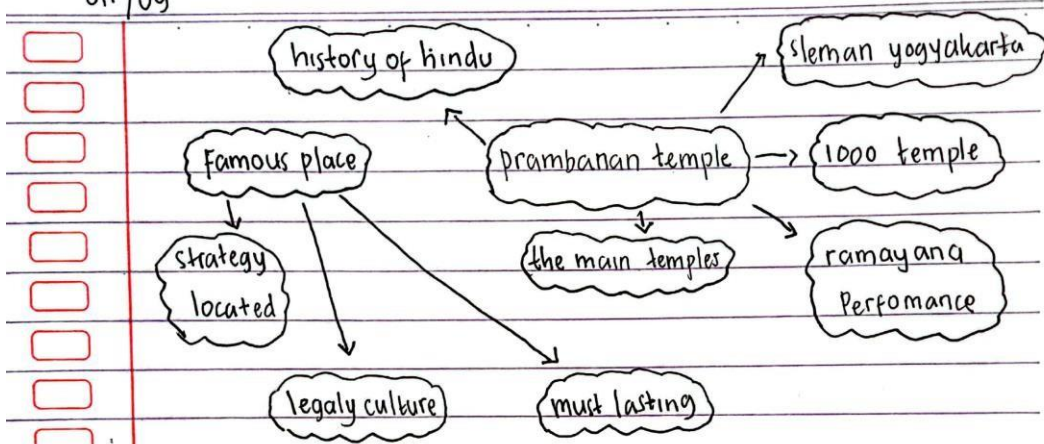 history of hindu
sleman yogyakarta
Famous place
prambanan temple
1000 temple
strategy
located
the main temples
ramayana
Perfomance
legaly culture
must lasting